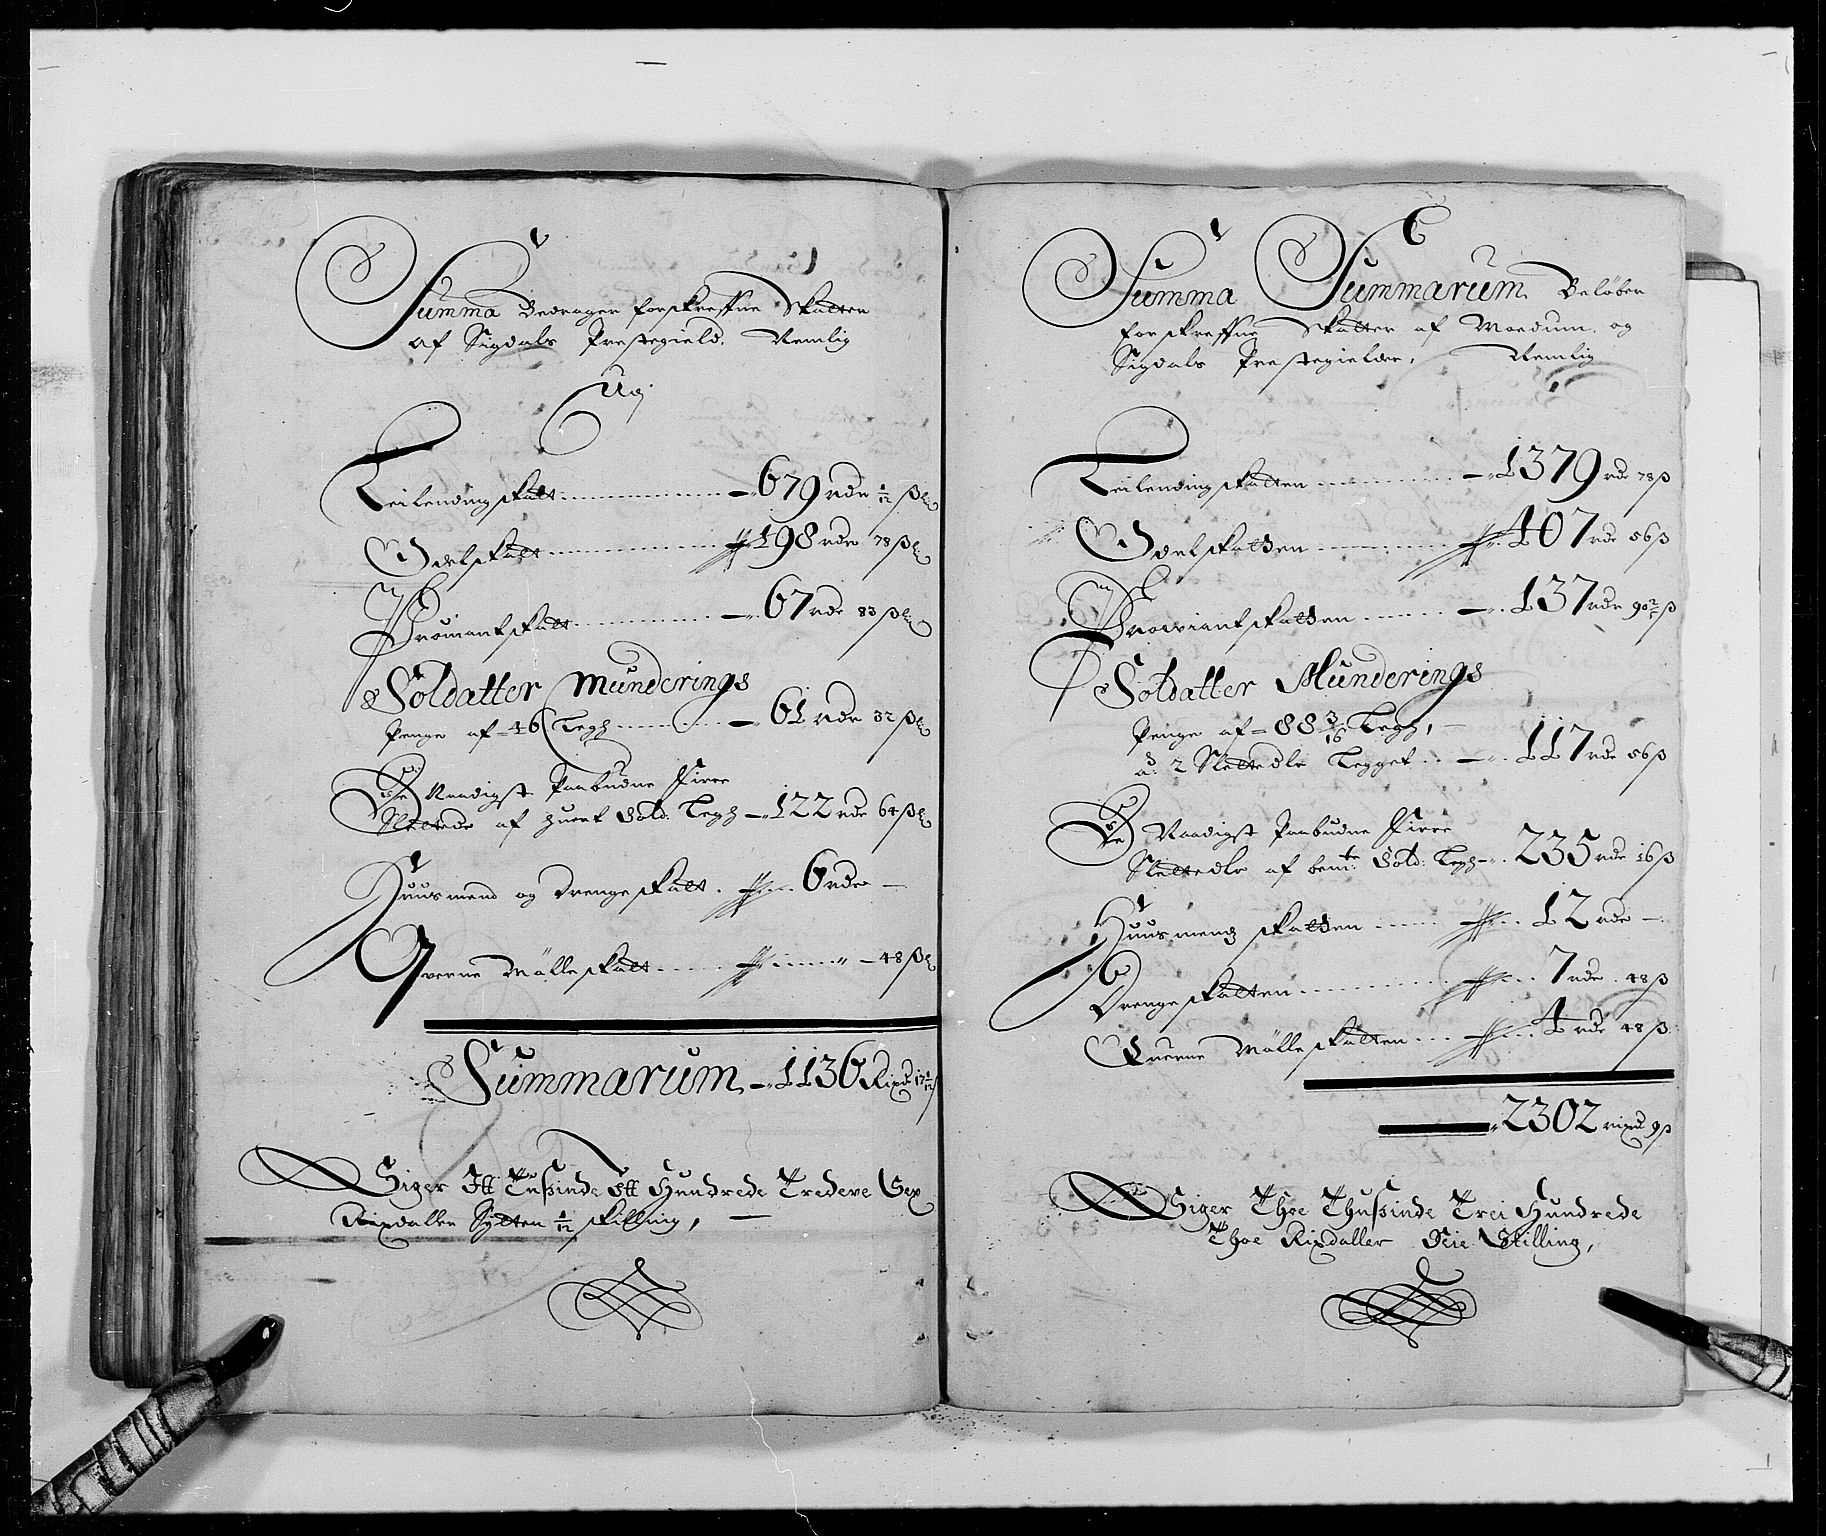 Summa Bedrager forskreffne Skatter
af Sigdals Prestegield, Nemlig
Leilendingskatt 679 rdr 1/12 ß
Odelskatt 198 rdr 78 ß
Proviantskatt 67 rdr 83 ß
Soldatter Munderings
Penge af 46 Legh 61 rdr 32 ß
De Naadigst Paabudne Fire
Sletteda af huert Sold: Legh 122 rdr 64 ß
Huusmend og Drengeskatt 6 rdr
Qverne Mølleskatt 48 ß
Summarum 1136 Rixd 17 1/12 ß
Siger Itt Tusinde Itt Hundrede Tredeve Sex
Rixdaller Sytten 1/12 skilling,
Summa Summarum Beløber
forskreffne Skatter af Moedum og
Sigdals Prestegielder, Nemlig
Leilendingskatten 1379 rdr 78 ß
Odelskatten 407 rdr 56 ß
Proviantskatten 137 rdr 90 2/5 ß
Soldatter Munderings
Penge af 88 3/16 Legh,
a: 2 Slettedlr Legget 117 rdr 56 ß
De Naadigst Paabudne Fire
Slettedlr af bemte: Sold: Legh 235 rdr 16 ß
Huusmends skatten 12 rdr
Drengeskatten 7 rdr 48 ß
Querne Mølleskatten 4 rdr 48 ß
2302 rixd 9 ß
Siger Thoe Thusinde Trei Hundrede
Thoe Rixdaller Nie Skilling,